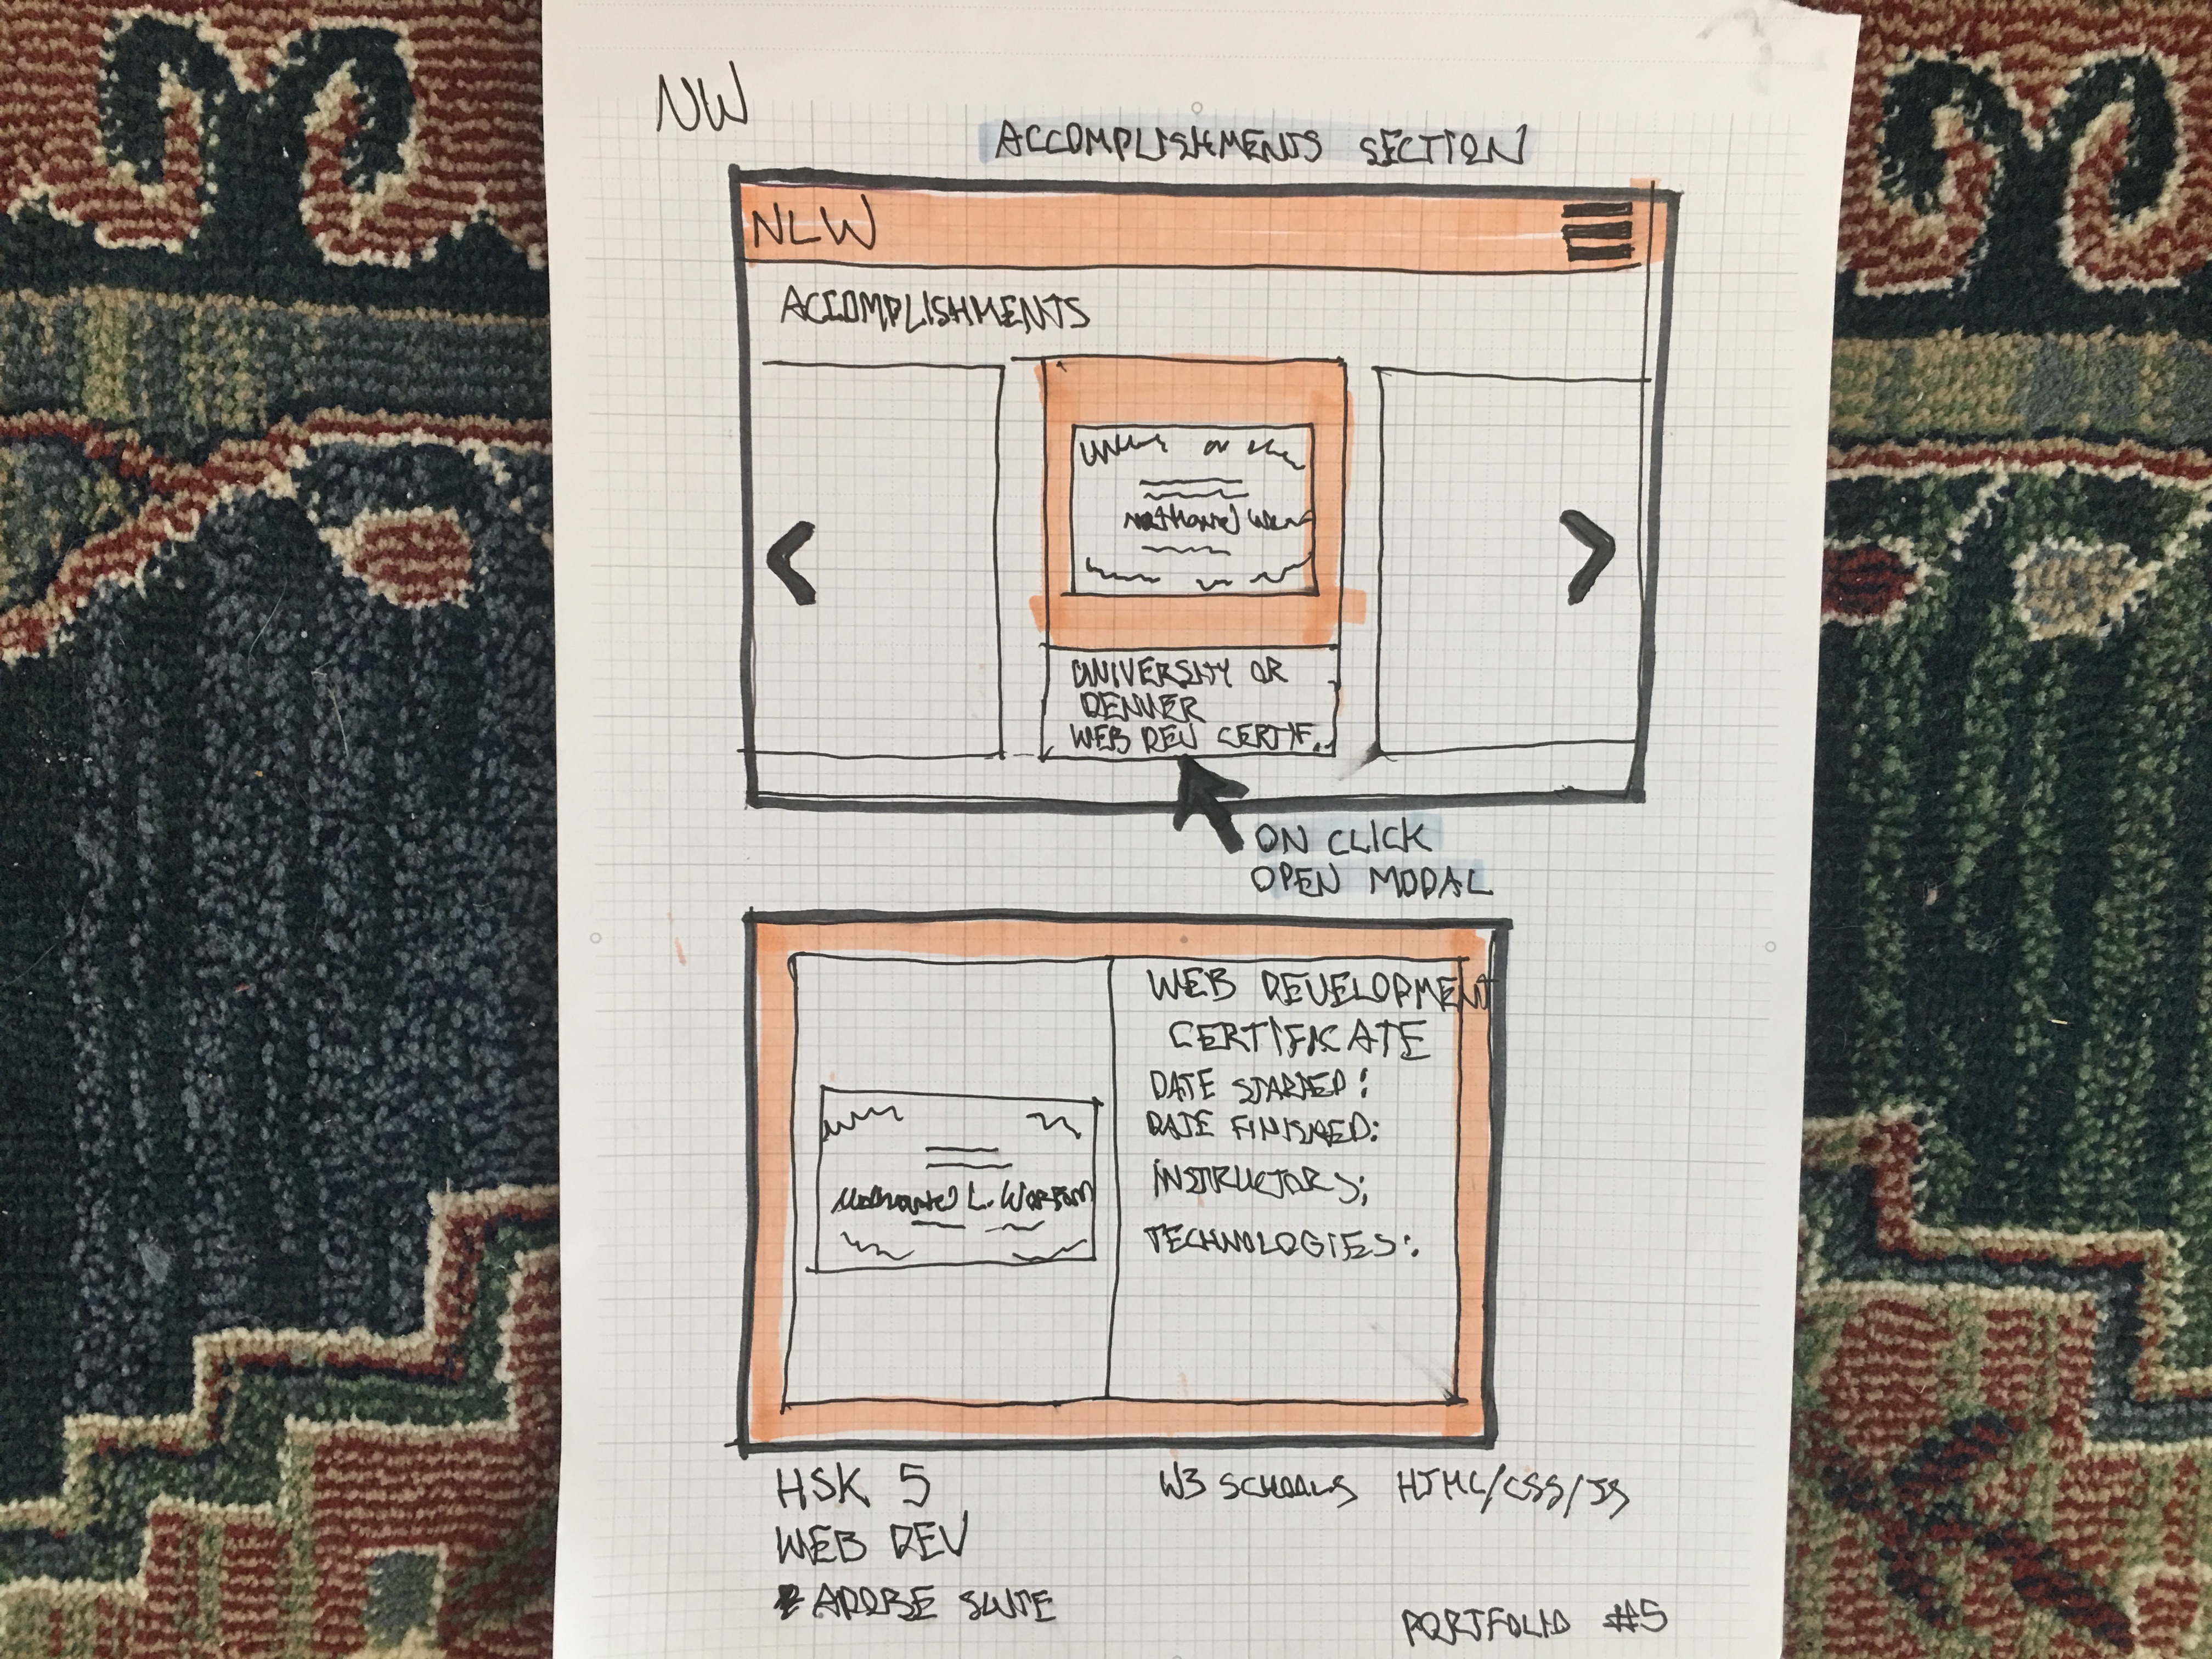 NW
ACCOMPLISHMENTS SECTION
NLW
ACCOMPLISHMENTS
Nathaniel
UNIVERSITY OF
DENVER
WEB DEV CERTIF.
ON CLICK
OPEN MODAL
WEB DEVELOPMENT
CERTIFICATE
DATE STARTED:
DATE FINISHED:
INSTRUCTORS:
TECHNOLOGIES:
Nathaniel L.
HSK 5
W3 SCHOOLS HTML/CSS/JS
WEB DEV
ADOBE SUITE
PORTFOLIO #5